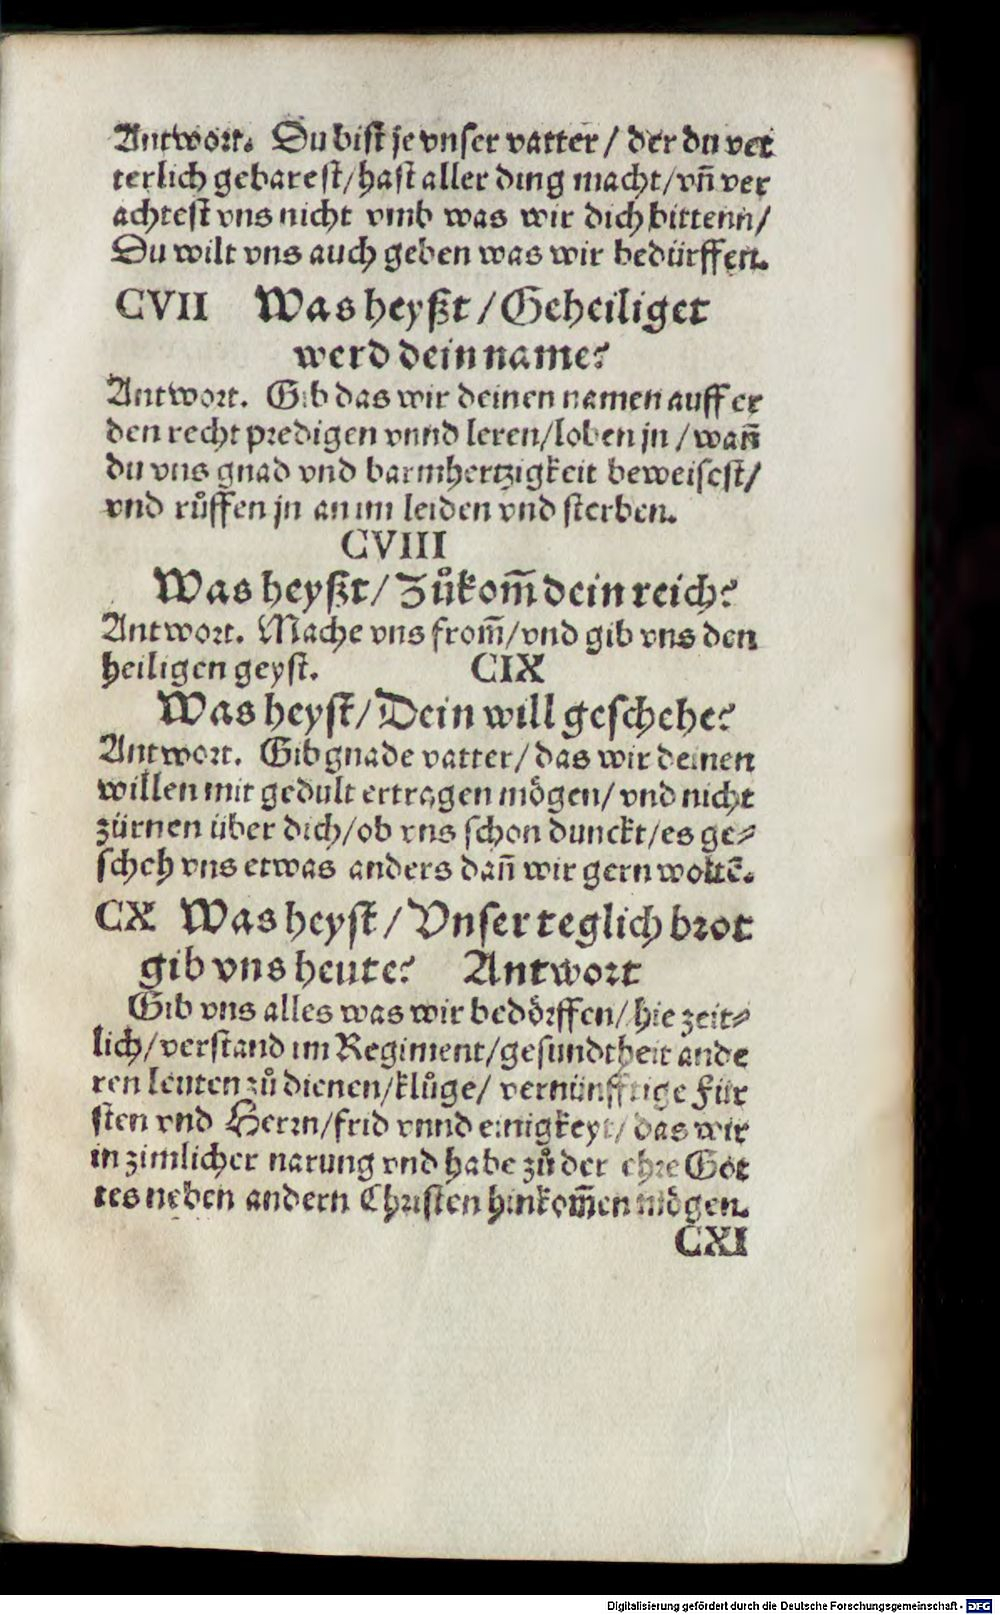 Antwort. Du bist je vnser vatter / der du vet
terlich gebarest/hast aller ding macht/vñ ver
achtest vns nicht vmb was wir dich bittenn/
Du wilt vns auch geben was wir bedürffen.
CVII Was heyßt / Geheiliget
werd dein name?
Antwort. Gib das wir deinen namen auff er
den recht predigen vnnd leren/loben jn / wañ
du vns gnad vnd barmhertzigkeit beweisest/
vnd růffen jn an im leiden vnd sterben.
CVIII
Was heyßt/ Zůkom̃ dein reich?
Antwort. Mache vns from̃/vnd gib vns den
heiligen geyst. CIX
Was heyst/ Dein will geschehe?
Antwort. Gib gnade vatter/ das wir deinen
willen mit gedult ertragen mögen/ vnd nicht
zürnen über dich/ob vns schon dunckt/es ge⸗
scheh vns etwas anders dañ wir gern woltẽ.
CX Was heyst / Vnser teglich brot
gib vns heute? Antwort
Gib vns alles was wir bedörffen/ hie zeit⸗
lich/ verstand im Regiment/gesundtheit ande
ren leuten zů dienen/klůge/ vernünfftige Für
sten vnd Herrn/frid vnnd einigkeyt/ das wir
in zimlicher narung vnd habe zů der ehre Got
tes neben andern Christen hinkom̃en mögen.
CXI
Digitalisierung gefördert durch die Deutsche Forschungsgemeinschaft - DFG